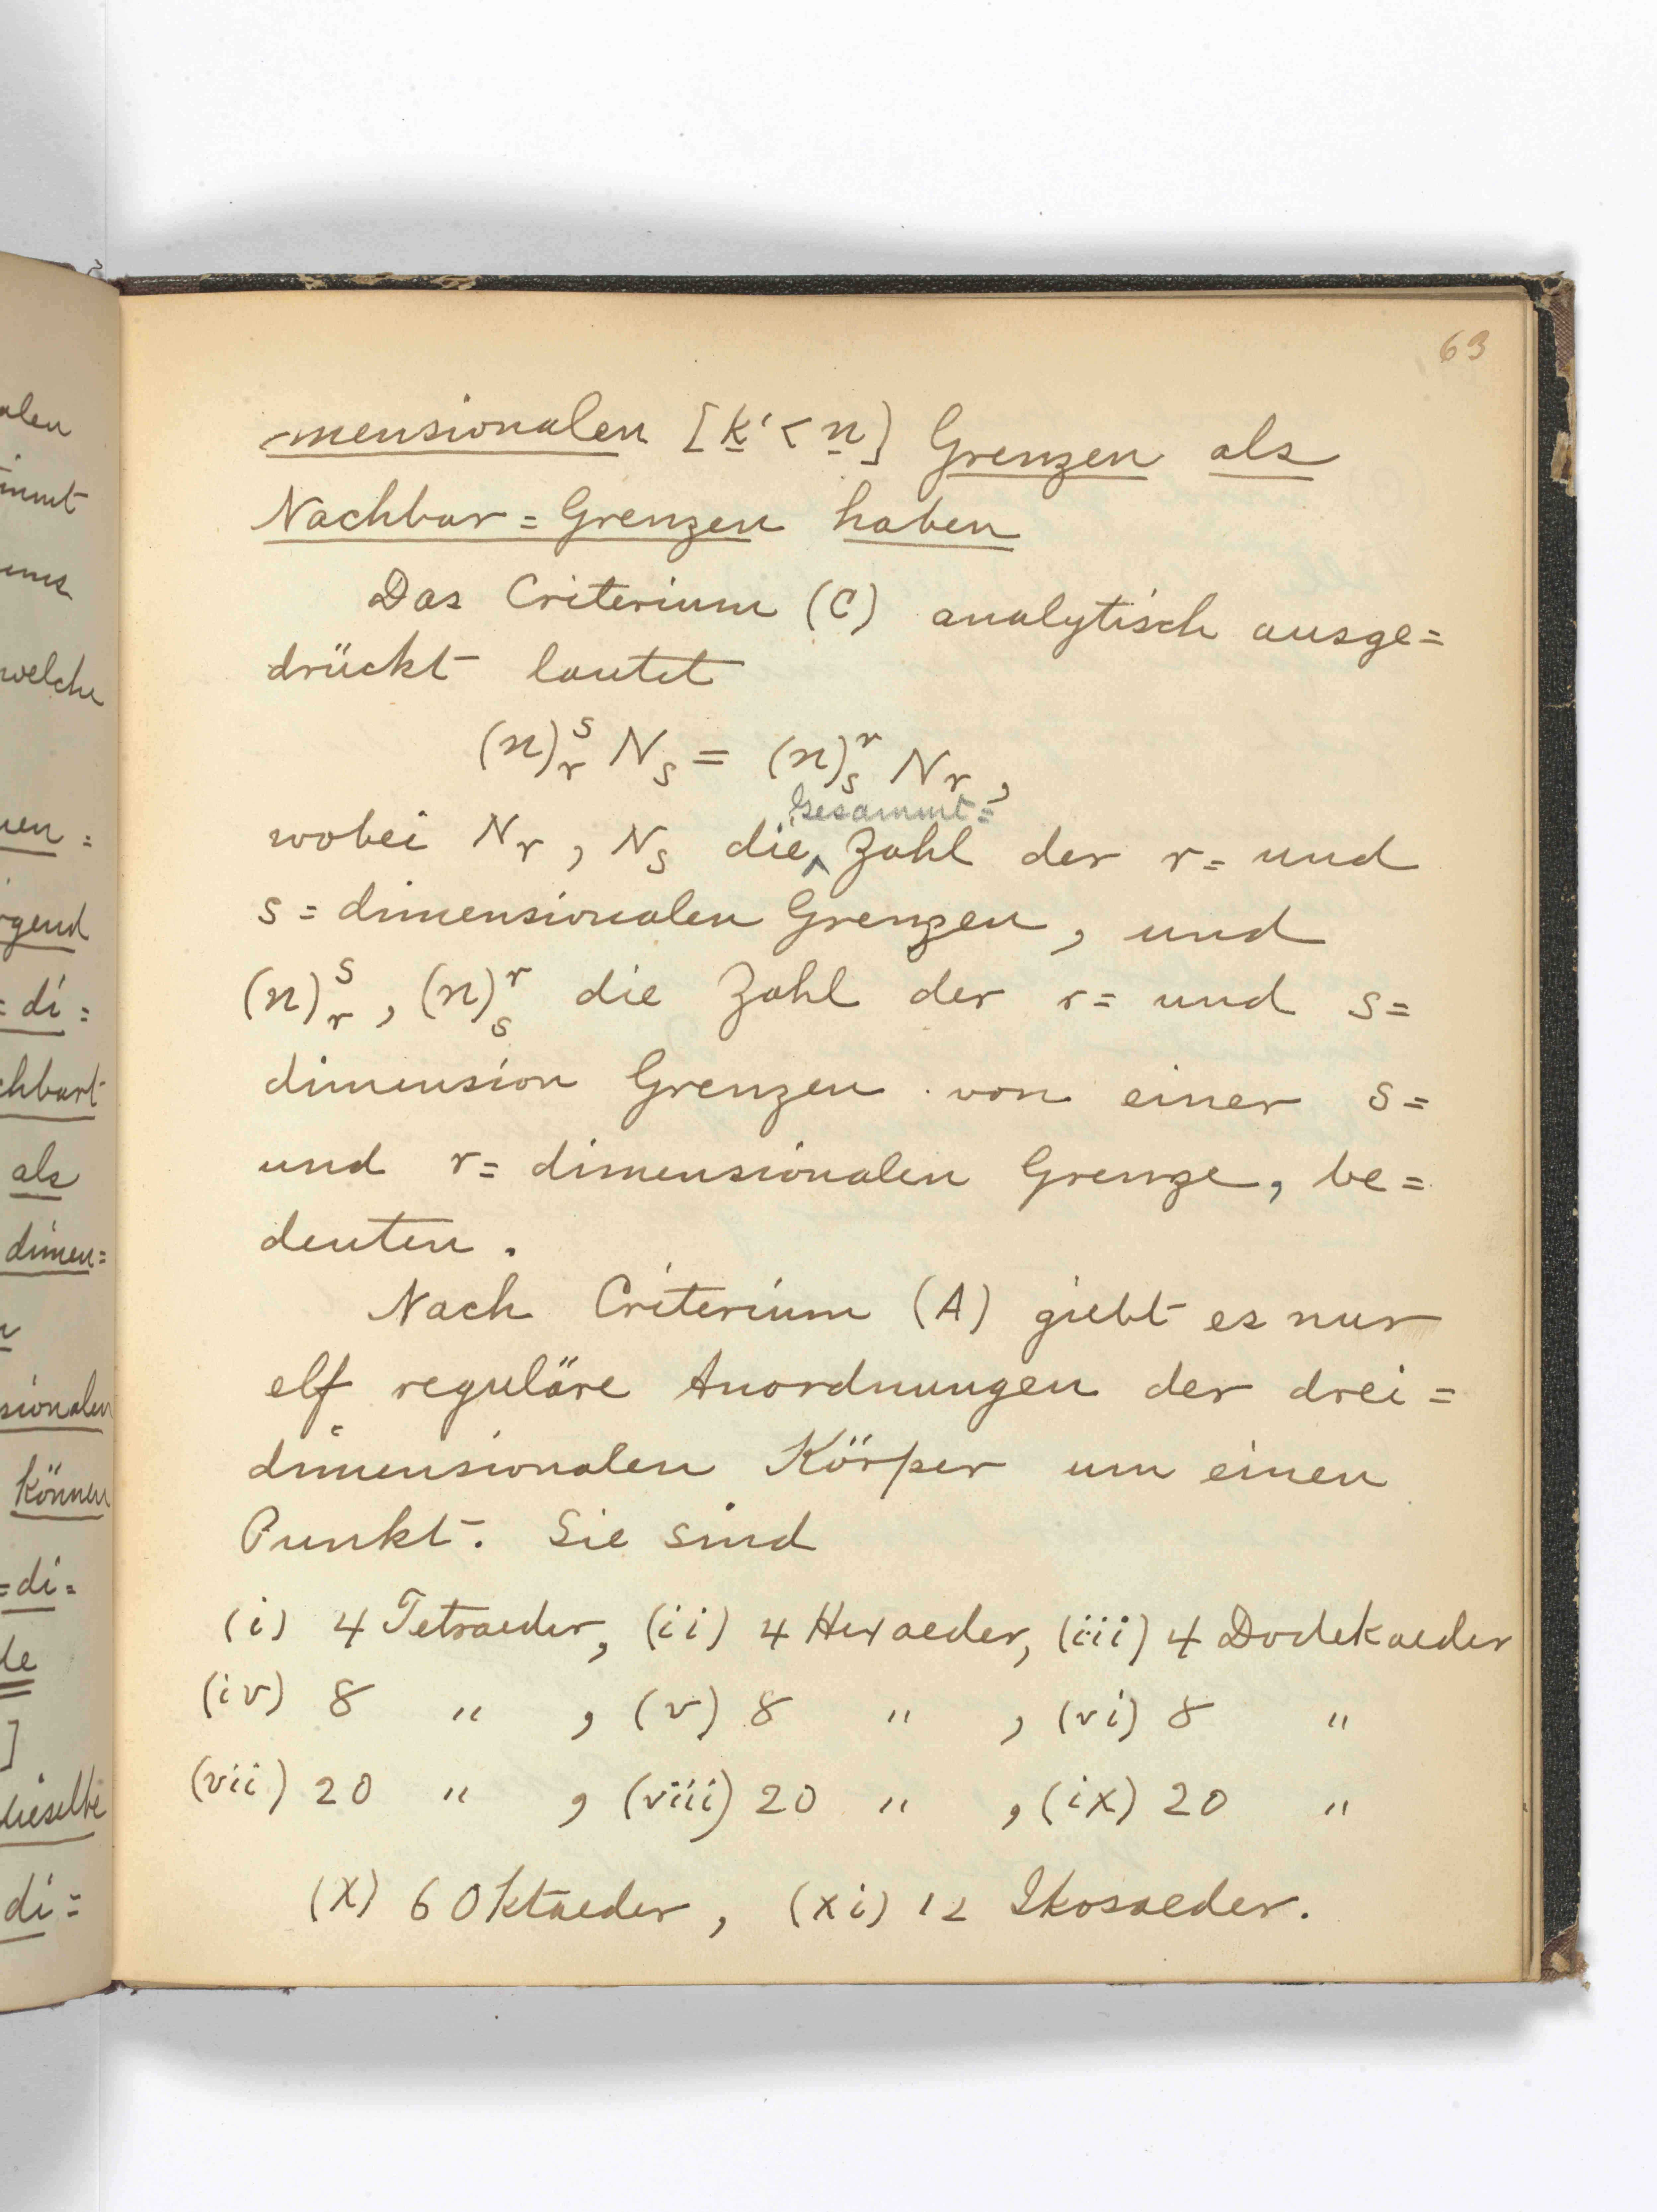 63
mensionalen [k'<n] Grenzen als
Nachbar=Grenzen haben
Das Criterium (C) analytisch ausge=
drückt lautet
(n)_r^s N_s = (n)_s^r N_r,
Gesammt=
wobei N_r, N_s die Zahl der r= und
s=dimensionalen Grenzen, und
(n)_r^s, (n)_s^r die Zahl der r= und s=
dimension Grenzen von einer s=
und r=dimensionalen Grenze, be=
deuten.
Nach Criterium (A) giebt es nur
elf reguläre Anordnungen der drei=
dimensionalen Körper um einen
Punkt. Sie sind
(i) 4 Tetraeder, (ii) 4 Hexaeder, (iii) 4 Dodekaeder
(iv) 8 " , (v) 8 " , (vi) 8 "
(vii) 20 " , (viii) 20 " , (ix) 20 "
(x) 6 Oktaeder, (xi) 12 Ikosaeder.
alen
welche
rgend
=di=
chbart
als
dimen=
sionalen
können
=di=
]
dieselbe
di=